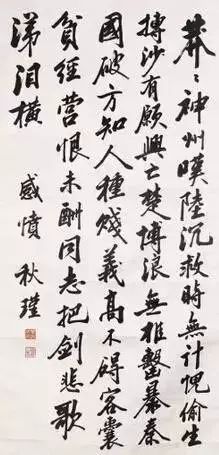 莽〻神州嘆陸沉救時無計愧偷生
摶沙有願興亡楚博浪無椎擊暴秦
國破方知人種賤義高不碍客囊
貧經營恨未酬同志把劍悲歌
涕泪橫
感憤 秋瑾